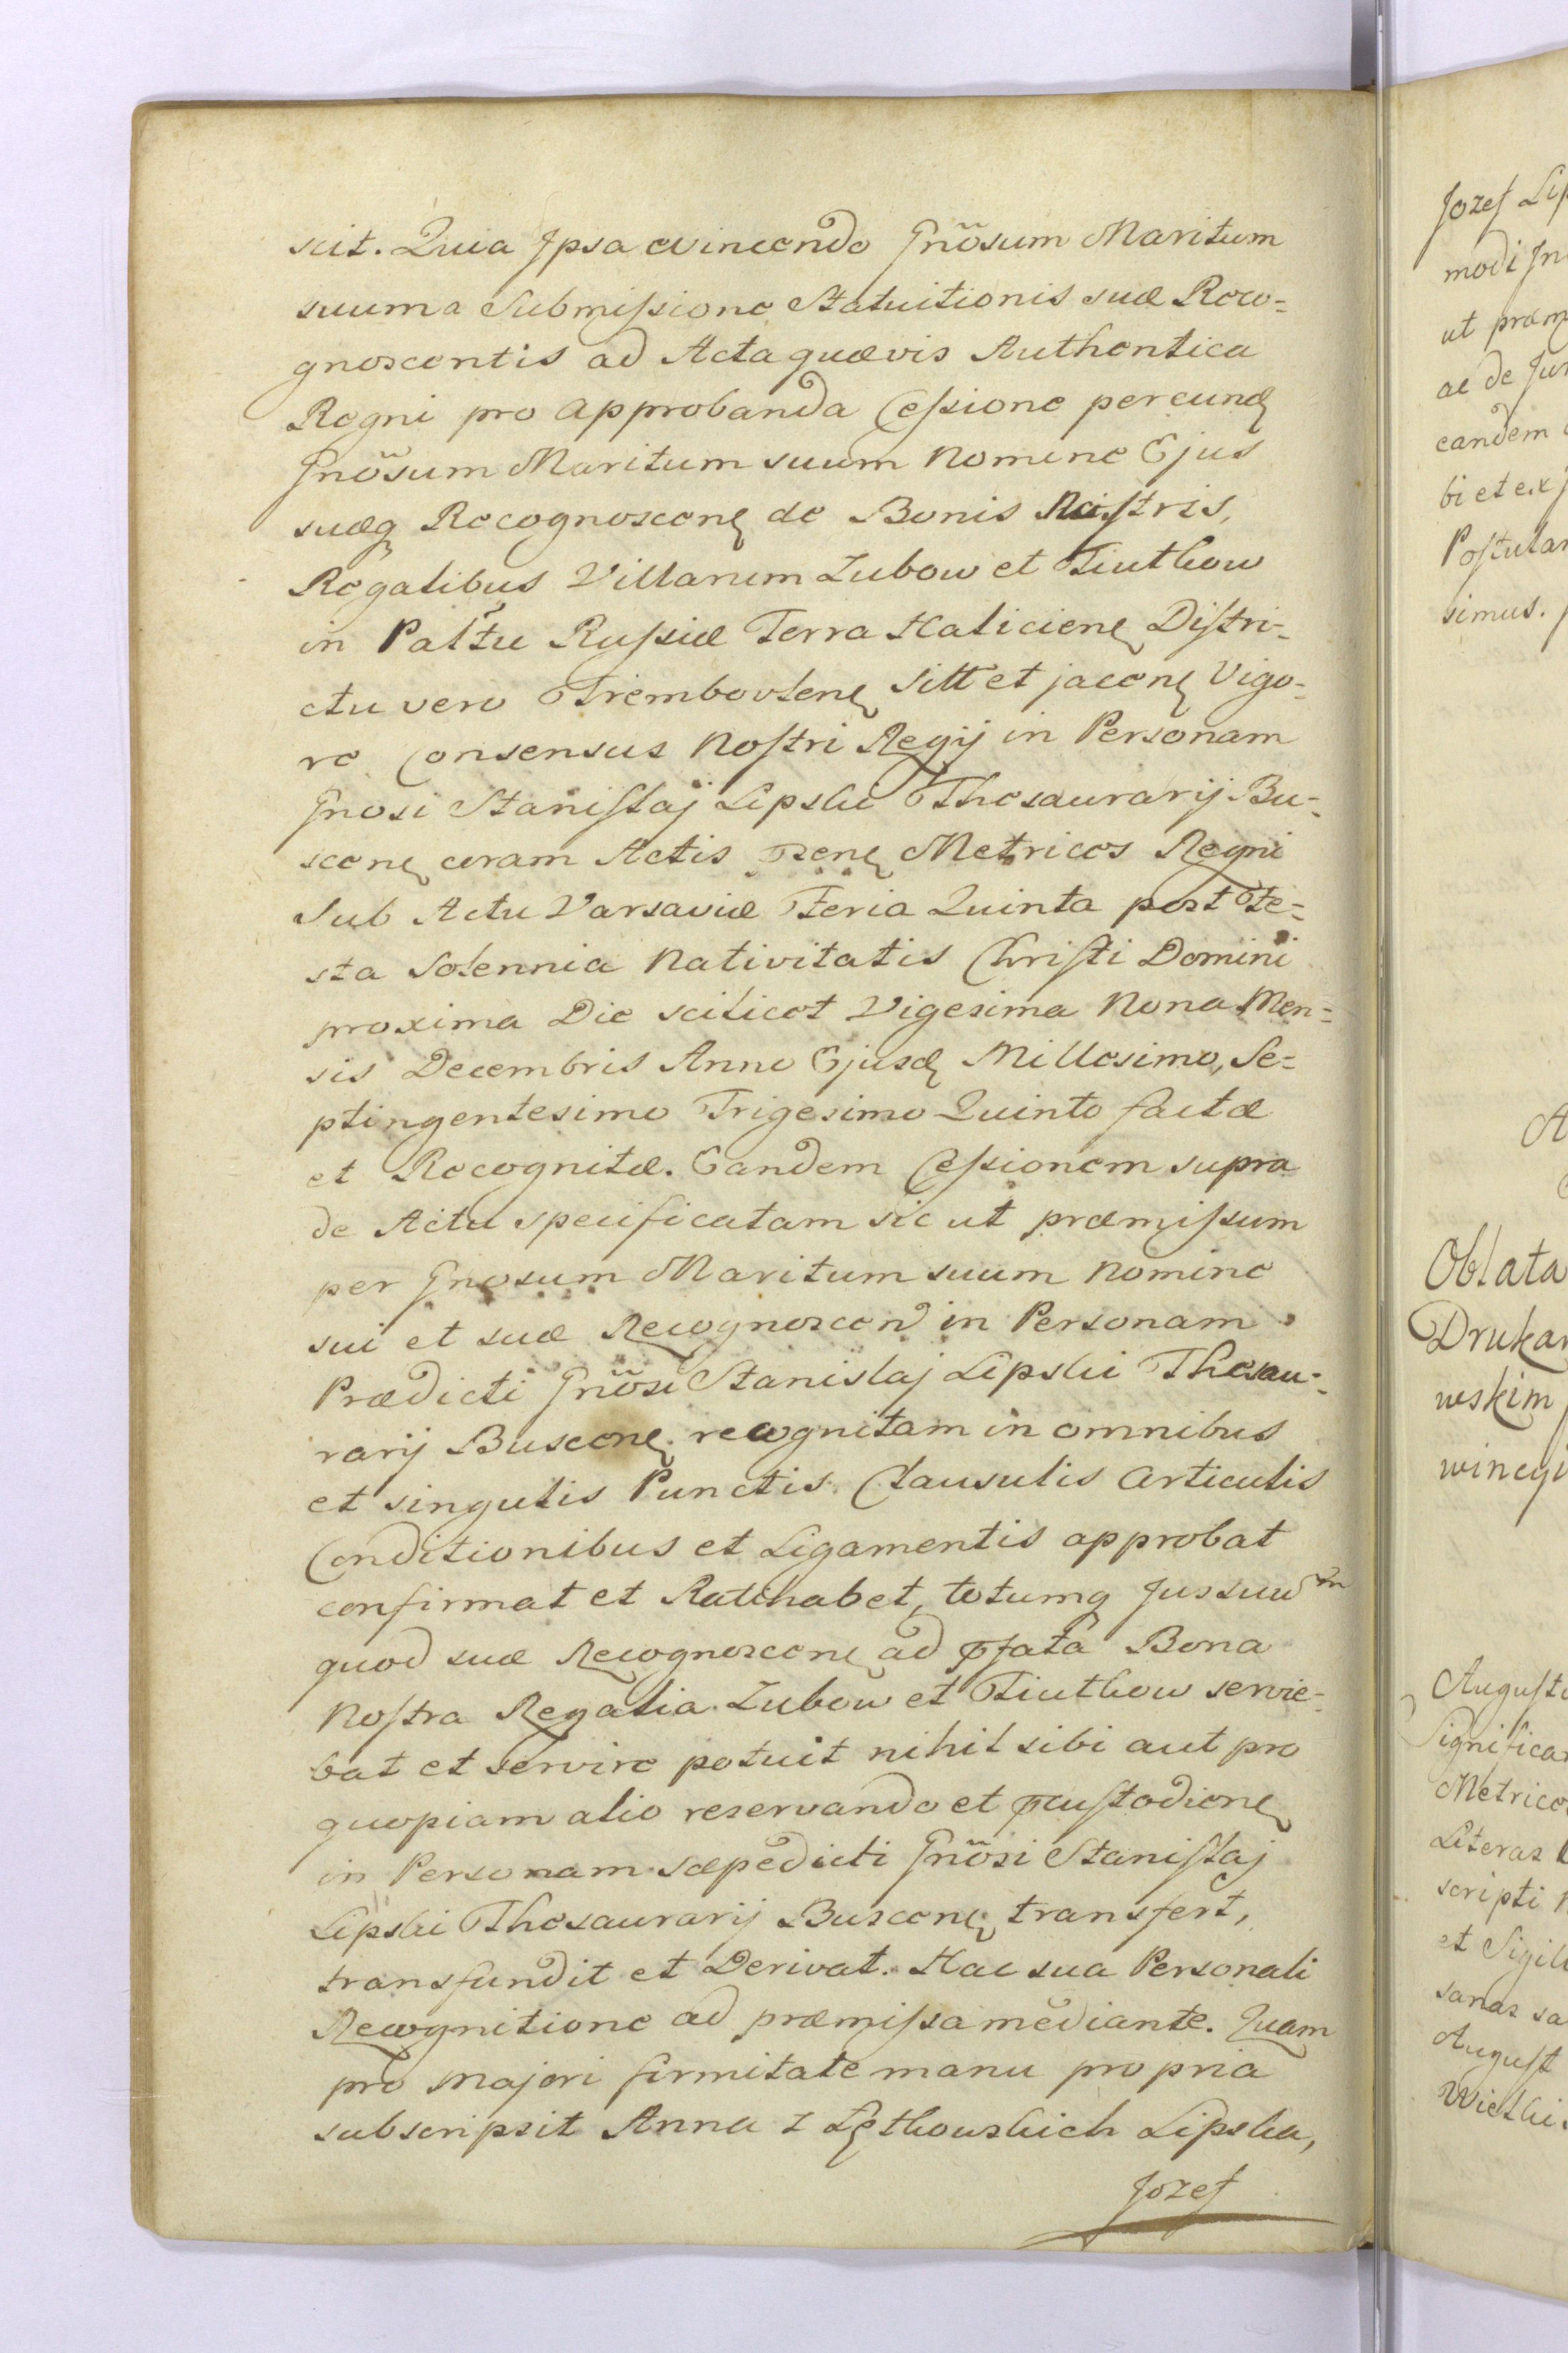 scit. Quia Ipsa evincendo Gnõsum Maritum
suum a Submissione Statuitionis suæ Reco=
gnoscentis ad Acta quævis Authentica
Regni pro approbanda Cessione per eund
Gnõsum Maritum suum Nomine Ejus
suæq Recognoscen de Bonis Nostris,
Regalibus Villarum Zubow et Tiutkow
in Paltu Russiæ Terra Halicien Distri=
ctu vero Trembovlen sitt et jacen Vigo=
re Consensus Nostri Regij in Personam
Gnosi Stanislaj Lipski Thesaurarij Bu=
scen coram Actis pen Metrices Regni
Sub Actu Varsaviæ Feria Quinta post Fe=
sta Solennia Nativitatis Christi Domini
proxima Die scilicet Vigesima Nona Men=
sis Decembris Anno Ejusd Millesimo, Se=
ptingentesimo Trigesimo Quinto factæ
et Recognitæ. Eandem Cessionem supra
de Actu specificatam sic ut præmissum
per Gnosum Maritum suum Nomine
sui et suæ Recognoscen in Personam
Prædicti Gnõsi Stanislaj Lipski Thesau=
rarij Buscen recognitam in omnibus
et singulis Punctis Clausulis Articulis
Conditionibus et Ligamentis approbat
confirmat et Ratihabet, totumq Jus suum
quod suæ Recognoscen ad pfata Bona
Nostra Regalia Zubow et Tiutkow servie=
bat et servire potuit nihil sibi aut pro
quopiam alio reservando et pcustodien
in Personam sæpedicti Gnõsi Stanislaj
Lipski Thesaurarij Buscen transfert,
transfundit et Derivat. Hac sua Personali
Recognitione ad præmissa mediante. Quam
pro majori firmitate manu propria
subscripsit Anna z Łętkowskich Lipska,
Jozef
Jozef
modi
ut
al de
eandem
bi et ex
simus.
Oblata
wskim
Metrico
Literas
scripti
et
sanas sa
August